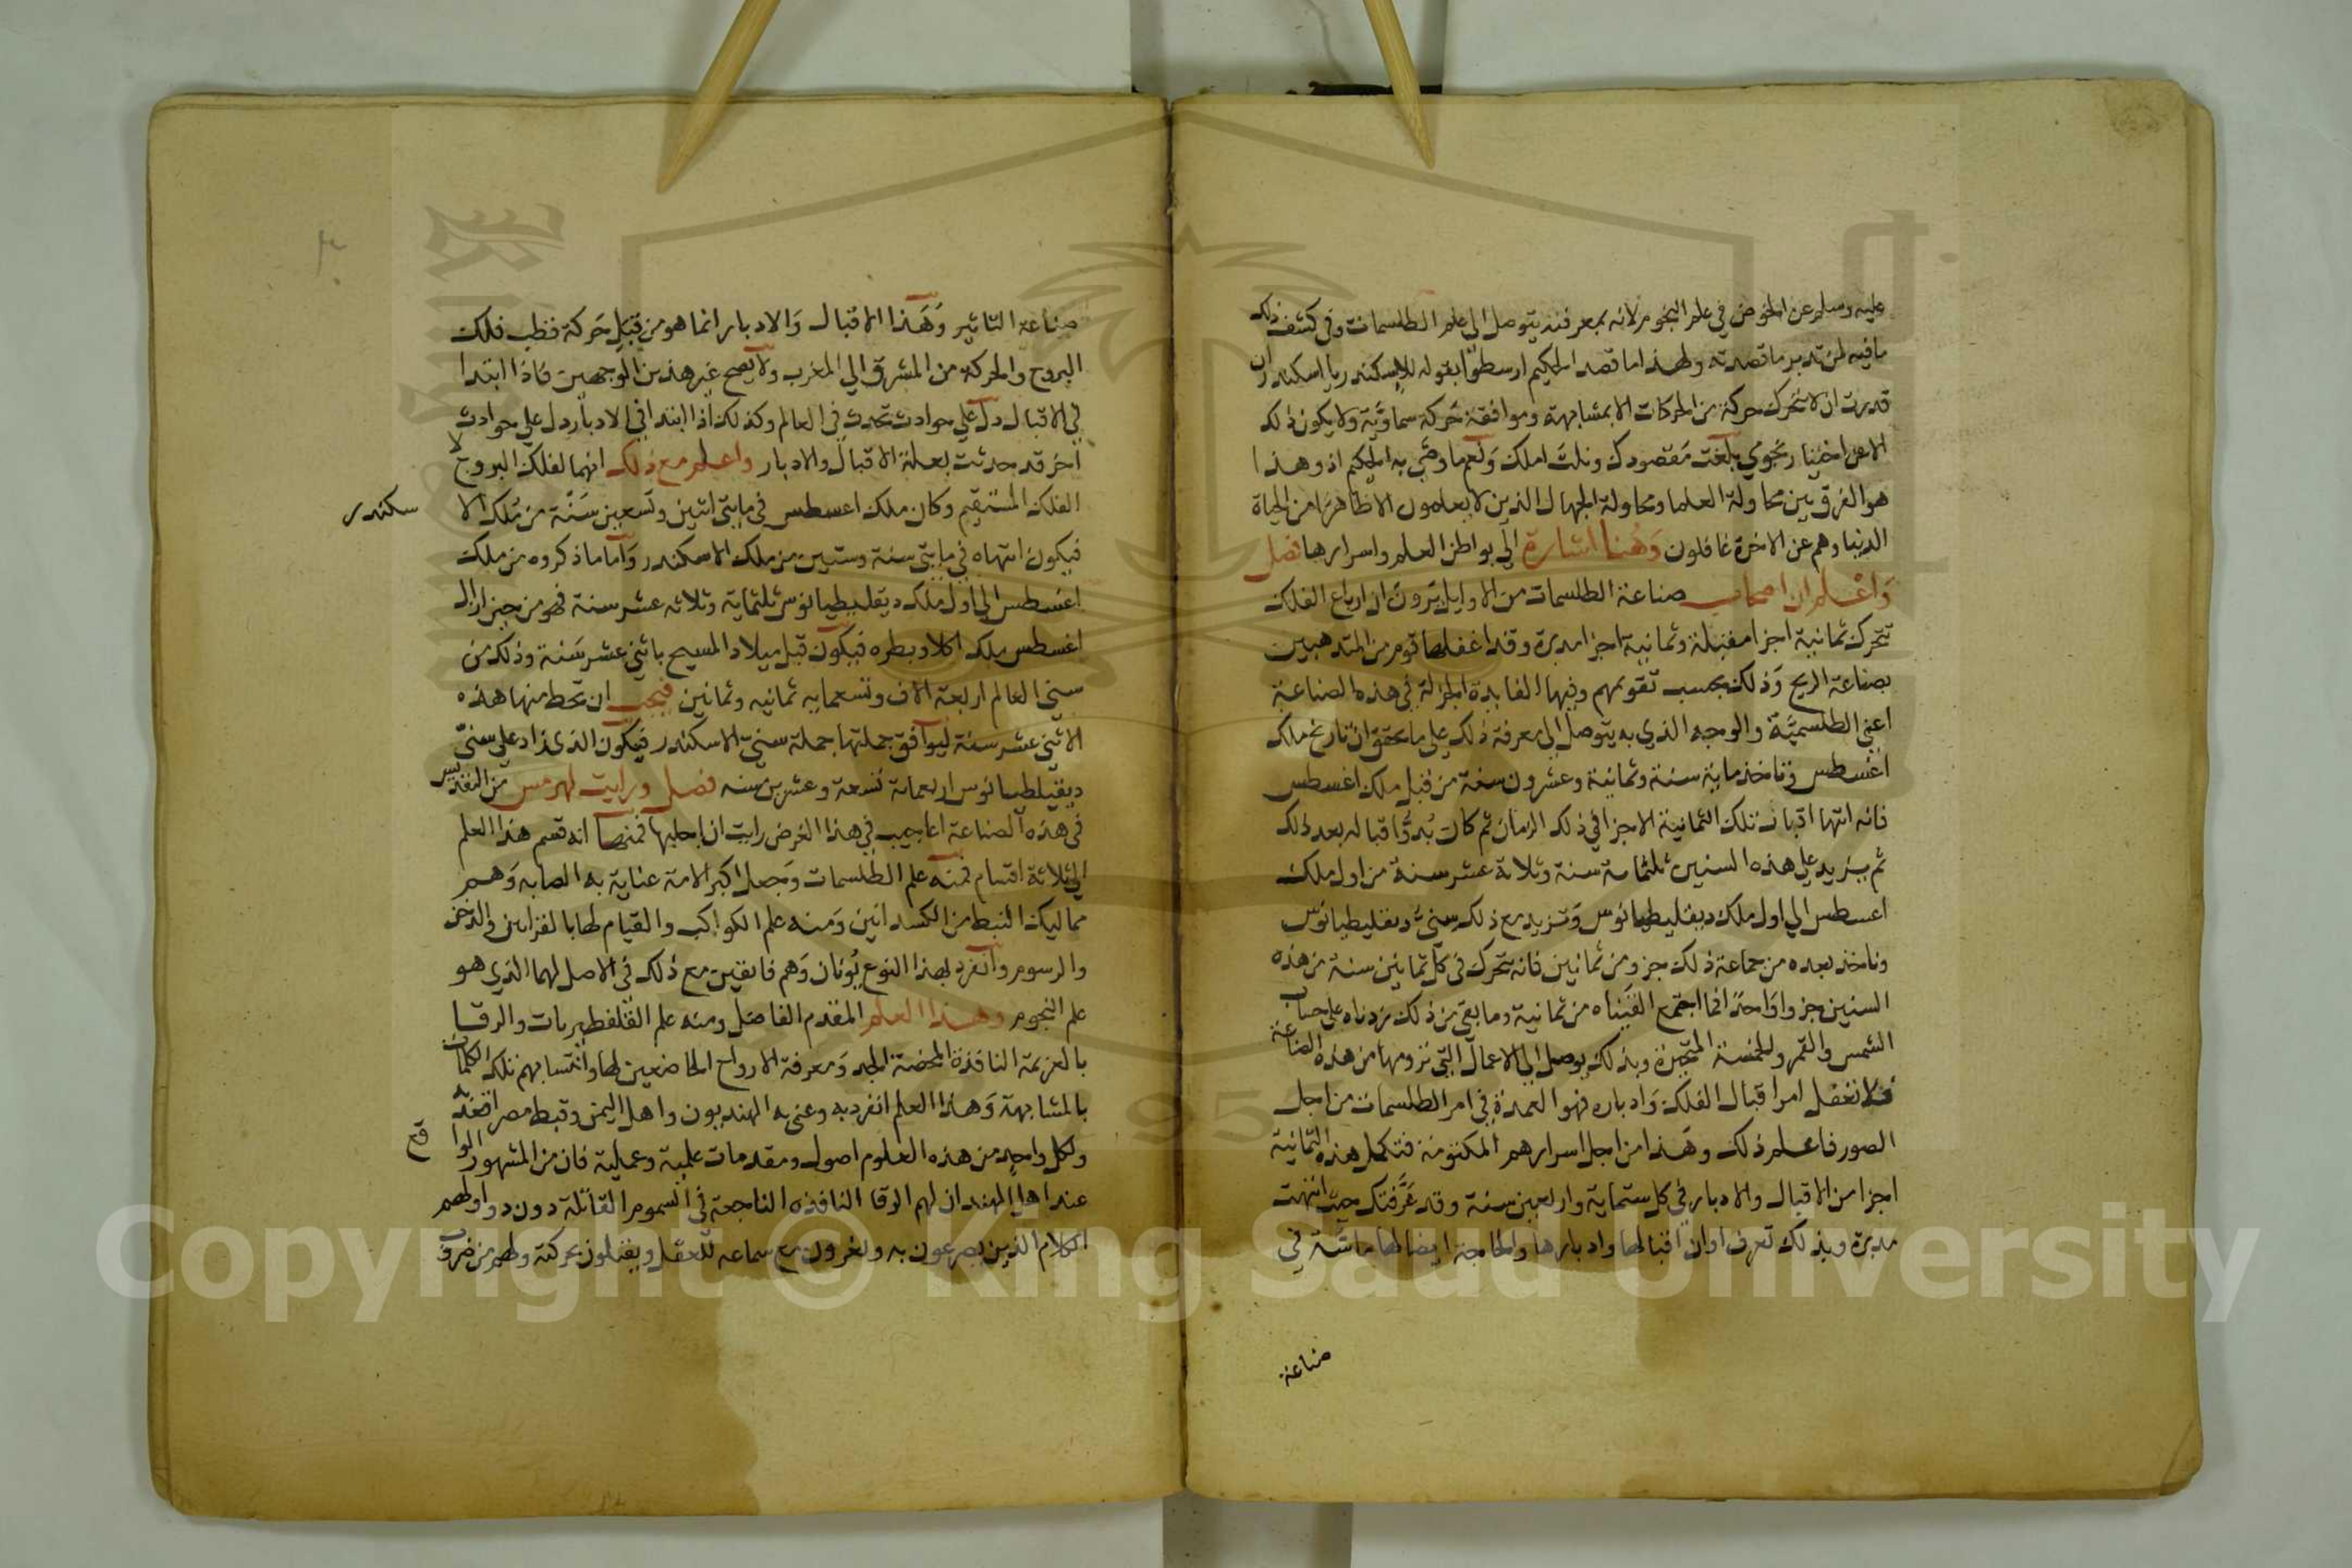 عليه وسلم عن الخوض في علم النجوم لانه بمعرفته يتوصل الى علم الطلسمات وفي كشف ذلك
ما فيه لمن تدبر ما قصدته ولهذا ما قصد الحكيم ارسطو بقوله للاسكندر يا اسكندر ان
قدرت ان لا تتحرك حركة من الحركات الا بمشابهة وموافقة حركة سماوية ولا يكون ذلك
الا عن اختيار نجومي بلغت مقصودك ونلت املك ونعم ما وصى به الحكيم اذ وهذا
هو الفرق بين محاولة العلما ومحاولة الجهال الذين لا يعلمون الا ظاهرا من الحياة
الدنيا وهم عن الاخرة غافلون وهنا اشارة الى بواطن العلم واسرارها فصل
واعلم ان اصحاب صناعة الطلسمات من الاوايل يرون ان ارباع الفلك
تتحرك ثمانية اجزا مقبلة وثمانية اجزا مدبرة وقد اغفلها قوم من المتدهبين
بصناعة الزيج وذلك بحسب تقويمهم وفيها الفايدة الجزلة في هذه الصناعة
اعني الطلسمية والوجه الذي به يتوصل الى معرفة ذلك على ما يحقق ان تاريخ ملك
اغسطس وتاخذ ماية سنة وثمانية وعشرون سنة من قبل ملك اغسطس
فانه انتها اقبال تلك الثمانية الاجزا في ذلك الزمان ثم كان بدو اقباله بعد ذلك
ثم يزيد على هذه السنين ثلثماية سنة وثلاثة عشر سنة من اول ملك
اغسطس الى اول ملك ديقليطيانوس وتزيد مع ذلك سني ديقليطيانوس
وتاخذ بعده من جماعة ذلك جزو من ثمانين فانه يتحرك في كل ثمانين سنة من هذه
السنين جزوا واحدا فما اجتمع القيناه من ثمانية وما بقي من ذلك زدناه على حساب
الشمس والقمر وللخمسة المتحيرة وبذلك يوصل الى الاعمال التي نرومها من هذه الصناعة
فلا تغفل امر اقبال الفلك وادباره فهو العمدة في امر الطلسمات من اجل
الصور فاعلم ذلك وهذا من اجل اسرارهم المكتومة فتكمل هذه الثمانية
اجزا من الاقبال والادبار في كل ستماية واربعين سنة وقد عرفتك حيث انتهت
مدبرة وبذلك تعرف اوان اقبالها وادبارها والحاجة ايضا لها ماسة في
صناعة
صناعة التاثير وهذا الاقبال والادبار انما هو من قبل حركة قطب فلك
البروج والحركة من المشرق الى المغرب ولا يصح غير هذين الوجهين فاذا ابتدا
في الاقبال دل على حوادث تحدث في العالم وكذلك اذا ابتدا في الادبار دل على حوادث
اخر قد حدثت بعلة الاقبال والادبار واعلم مع ذلك انهما لفلك البروج لا
الفلك المستقيم وكان ملك اغسطس في مايتي اثنين وتسعين سنة من ملك الا
سكندر
فيكون انتهاه في مايتي سنة وستين من ملك الاسكندر واما ما ذكروه من ملك
اغسطس الى اول ملك ديقليطيانوس ثلثماية وثلاثه عشر سنة فهو من حين ازال
اغسطس ملك اكلاوبطره فيكون قبل ميلاد المسيح باثني عشر سنة وذلك من
سني العالم اربعة الاف وتسعمايه ثمانيه وثمانين فيجب ان تحط منها هذه
الاثني عشر سنة ليوافق جملتها جملة سني الاسكندر فيكون الذي زاد على سني
ديقليطيانوس اربعماية تسعة وعشرين سنه فصل ورايت لهرمس من التقديس
في هذه الصناعة اعاجيب في هذا الغرض رايت ان اجليها فمنها انه قسم هذا العلم
الى ثلاثة اقسام فمنه علم الطلسمات وجعل اكبر الامة عناية به الصابه وهم
مماليك النبط من الكسدانيين ومنه علم الكواكب والقيام لها بالقرابين والدخن
والرسوم وانفرد بهذا النوع يونان وهم فايقين مع ذلك في الاصل لهما الذي هو
علم النجوم وهذا العلم المقدم الفاضل ومنه علم القلفطيريات والرقا
بالعزيمة النافذة المحضة الجد ومعرفة الارواح الخاضعين لها وانتسابهم تلك الكلمات
بالمشابهة وهذا العلم انفرد به وعني به الهنديون واهل اليمن وقبط مصر
ولكل واحد من هذه العلوم اصول ومقدمات علمية وعملية فان من المشهور الوا
قع
عند اهل الهند ان لهم الرقا النافذه الناجعة في السموم القاتلة دون دوا ولهم
الكلام الذين يصرعون به ويغرون مع سماعه للعقل ويفتلون بحركته ولهم من ضروب
Copyright © King Saud University